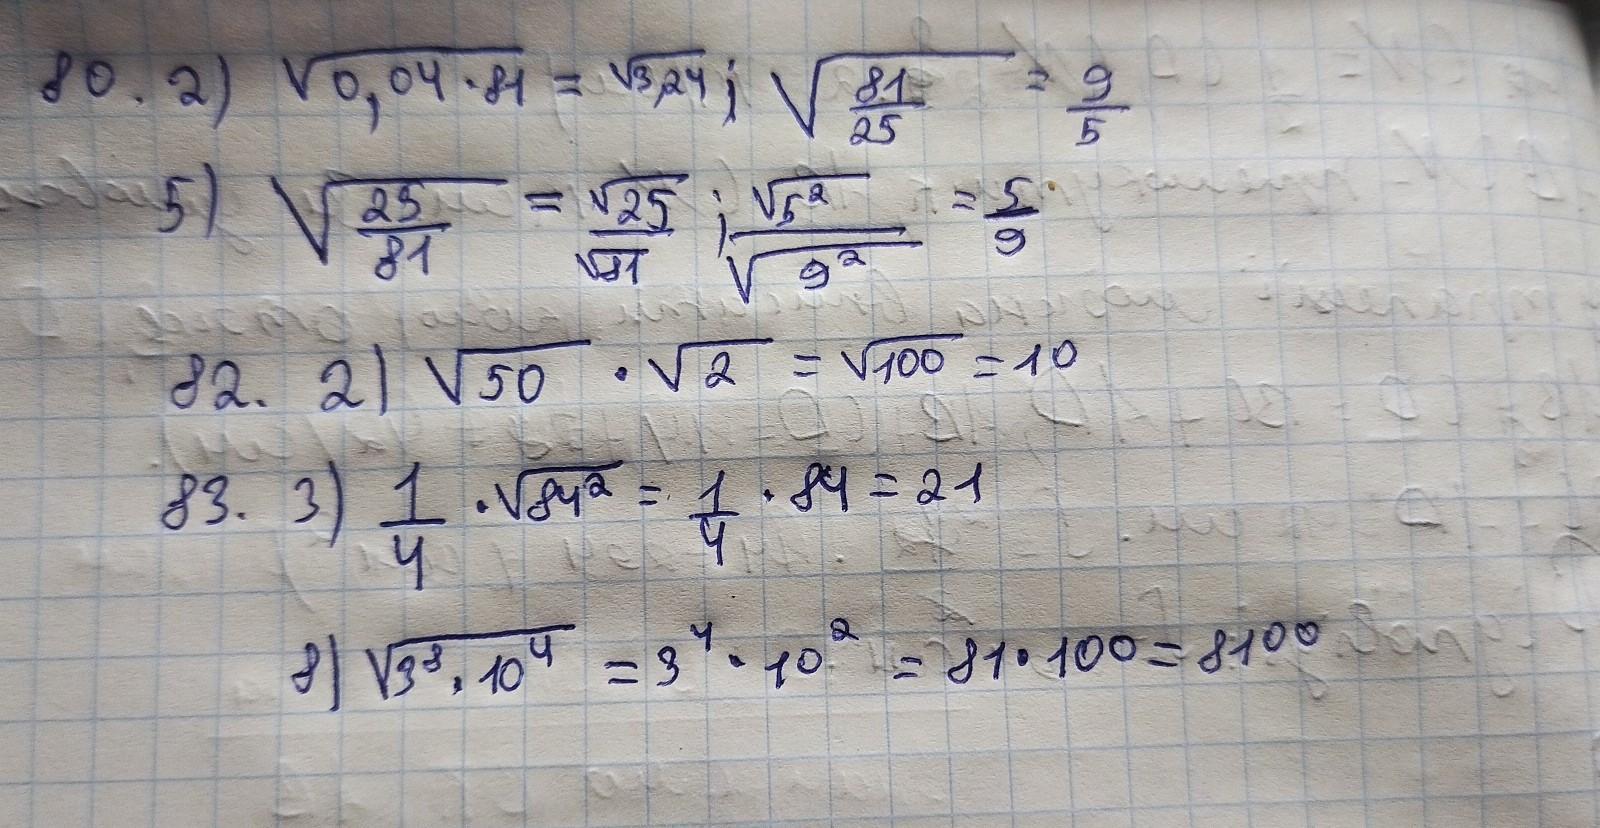 80. 2) √0,04·81 = √3,24; √81/25 = 9/5
5) √25/81 = √25/√81; √5²/√9² = 5/9
82. 2) √50 · √2 = √100 = 10
83. 3) 1/4 · √84² = 1/4 · 84 = 21
8) √3⁸·10⁴ = 3⁴·10² = 81·100 = 8100